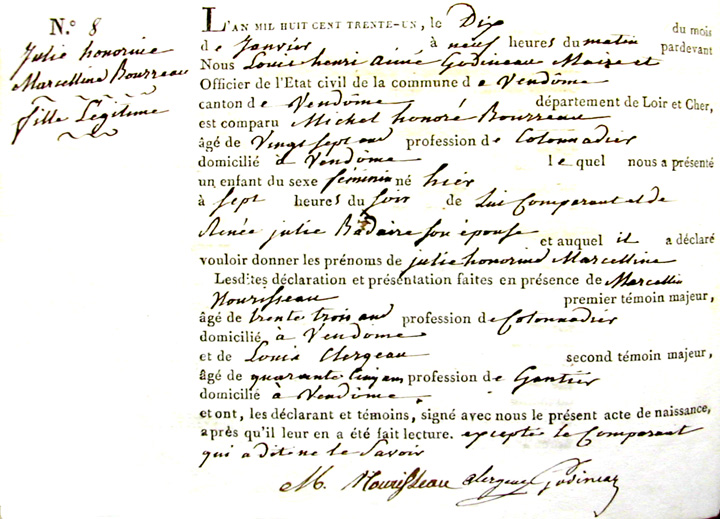 N.º 8
Julie honorine
Marcelline Bourreau
fille Légitime
L'AN MIL HUIT CENT TRENTE-UN, le Dix du mois
de Janvier à neuf heures du matin pardevant
Nous Louis henri aimé Godineau Maire et
Officier de l'Etat civil de la commune de Vendôme
canton de Vendôme département de Loir et Cher,
est comparu Michel honoré Bourreau
âgé de Vingt sept ans profession de Cotonnadier
domicilié à Vendôme lequel nous a présenté
un enfant du sexe féminin né hier
à sept heures du soir de Lui Comparant et de
Renée julie Badaire son épouse et auquel il a déclaré
vouloir donner les prénoms de julie honorine Marcelline
Lesdites déclaration et présentation faites en présence de Marcellin
Nourisseau premier témoin majeur,
âgé de trente trois ans profession de Cotonnadier
domicilié à Vendôme
et de Louis Clergeau second témoin majeur,
âgé de quarante cinq ans profession de Gantier
domicilié à Vendôme
et ont, les déclarant et témoins, signé avec nous le présent acte de naissance,
après qu'il leur en a été fait lecture. excepté le Comparant
qui a dit ne le Savoir
M. Nourisseau Clergeau Godineau